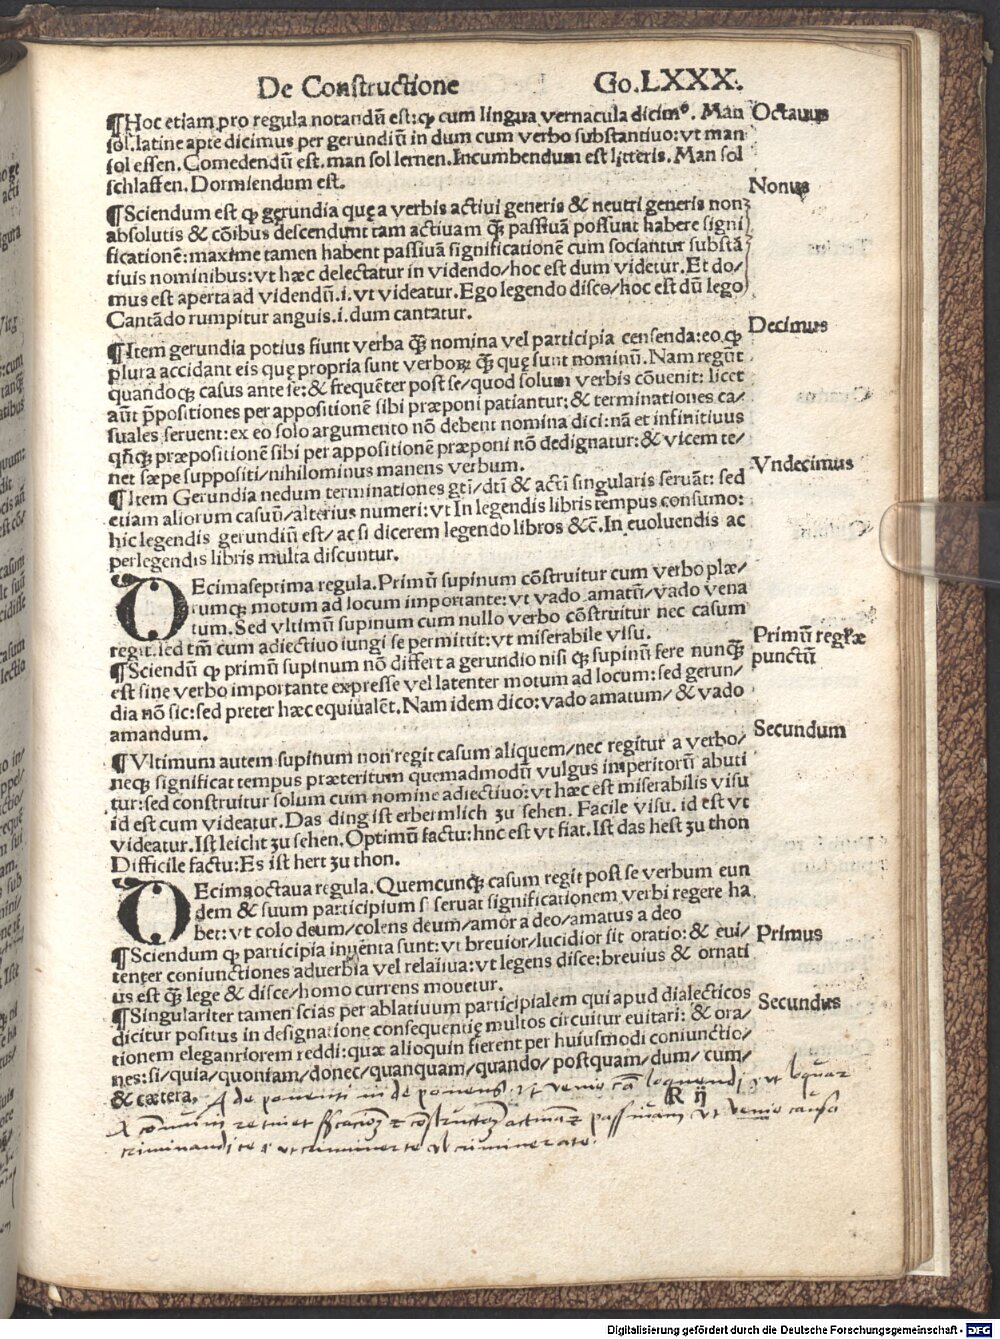 De Constructione Go.LXXX.
¶Hoc etiam pro regula notandū est:ꝙ cum lingua vernacula dicimꝰ. Man
sol.latine apte dicimus per gerundiū in dum cum verbo substantiuo:vt man
sol essen.Comedendū est.man sol lernen.Incumbendum est litteris.Man sol
schlaffen.Dormiendum est.
Octauus
¶Sciendum est ꝙ gerundia quę a verbis actiui generis & neutri generis non
absolutis & cōibus descendunt tam actiuam ꝙ̃ passiuā possunt habere signi
ficationē:maxime tamen habent passiuā significationē cum sociantur substā
tiuis nominibus:vt hæc delectatur in videndo/hoc est dum videtur.Et do/
mus est aperta ad videndū.i.vt videatur.Ego legendo disco/hoc est dū lego
Cantādo rumpitur anguis.i.dum cantatur.
Nonus
¶Item gerundia potius fiunt verba ꝙ̃ nomina vel participia censenda:eo ꝙ
plura accidant eis quę propria sunt verboꝝ ꝙ̃ quę sunt nominū.Nam regūt
quandoqꝫ casus ante se:& frequēter post se/quod solum verbis cōuenit: licet
aūt p̄positiones per appositionē sibi præponi patiantur:& terminationes ca/
suales seruent:ex eo solo argumento nō debent nomina dici:nā et infinitiuus
qn̄qꝫ præpositionē sibi per appositionē præponi nō dedignatur:& vicem te/
net sæpe suppositi/nihilominus manens verbum.
Decimus
¶Item Gerundia nedum terminationes gti̅/dti̅ & acti̅ singularis seruāt: sed
etiam aliorum casuū/alterius numeri:vt In legendis libris tempus consumo:
hic legendis gerundiū est/ac si dicerem legendo libros &c̄.In euoluendis ac
perlegendis libris multa discuntur.
Vndecimus
DEcimaseptima regula.Primū supinum cōstruitur cum verbo plæ/
rumqꝫ motum ad locum importante:vt vado amatū/vado vena
tum.Sed vltimū supinum cum nullo verbo cōstruitur nec casum
regit.sed tm̄ cum adiectiuo iungi se permittit:vt miserabile visu.
¶Sciendū ꝙ primū supinum nō differt a gerundio nisi ꝙ supinū fere nunꝙ̃
est sine verbo importante expresse vel latenter motum ad locum:sed gerun/
dia nō sic:sed preter hæc equiualēt.Nam idem dico:vado amatum/& vado
amandum.
Primū reglæ
punctū
¶Vltimum autem supinum non regit casum aliquem/nec regitur a verbo/
neqꝫ significat tempus præteritum quemadmodū vulgus imperitorū abuti
tur:sed construitur solum cum nomine adiectiuo:vt hæc est miserabilis visu
id est cum videatur.Das ding ist erbermlich zu sehen. Facile visu. id est vt
videatur.Ist leicht zu sehen.Optimū factu:hoc est vt fiat.Ist das best zu thon
Difficile factu:Es ist hert zu thon.
Secundum
DEcimaoctaua regula. Quemcunqꝫ casum regit post se verbum eun
dem & suum participium si seruat significationem verbi regere ha
bet:vt colo deum/colens deum/amor a deo/amatus a deo
¶Sciendum ꝙ participia inuenta sunt:vt breuior/lucidior sit oratio:& eui/
tentur coniunctiones aduerbia vel relatiua:vt legens disce:breuius & ornati
us est ꝙ̃ lege & disce/homo currens mouetur.
Primus
¶Singulariter tamen scias per ablatiuum participialem qui apud dialecticos
dicitur positus in designatione consequentię multos circuitur euitari: & ora/
tionem elegantiorem reddi:quæ alioquin fierent per huiusmodi coniunctio/
nes:si/quia/quoniam/donec/quanquam/quando/postquam/dum/cum/
& cætera.
Secundus
R ij
vt venio cā loquendi .i. vt loquar
passiuam vt venio causa
criminandi te
Digitalisierung gefördert durch die Deutsche Forschungsgemeinschaft - DFG